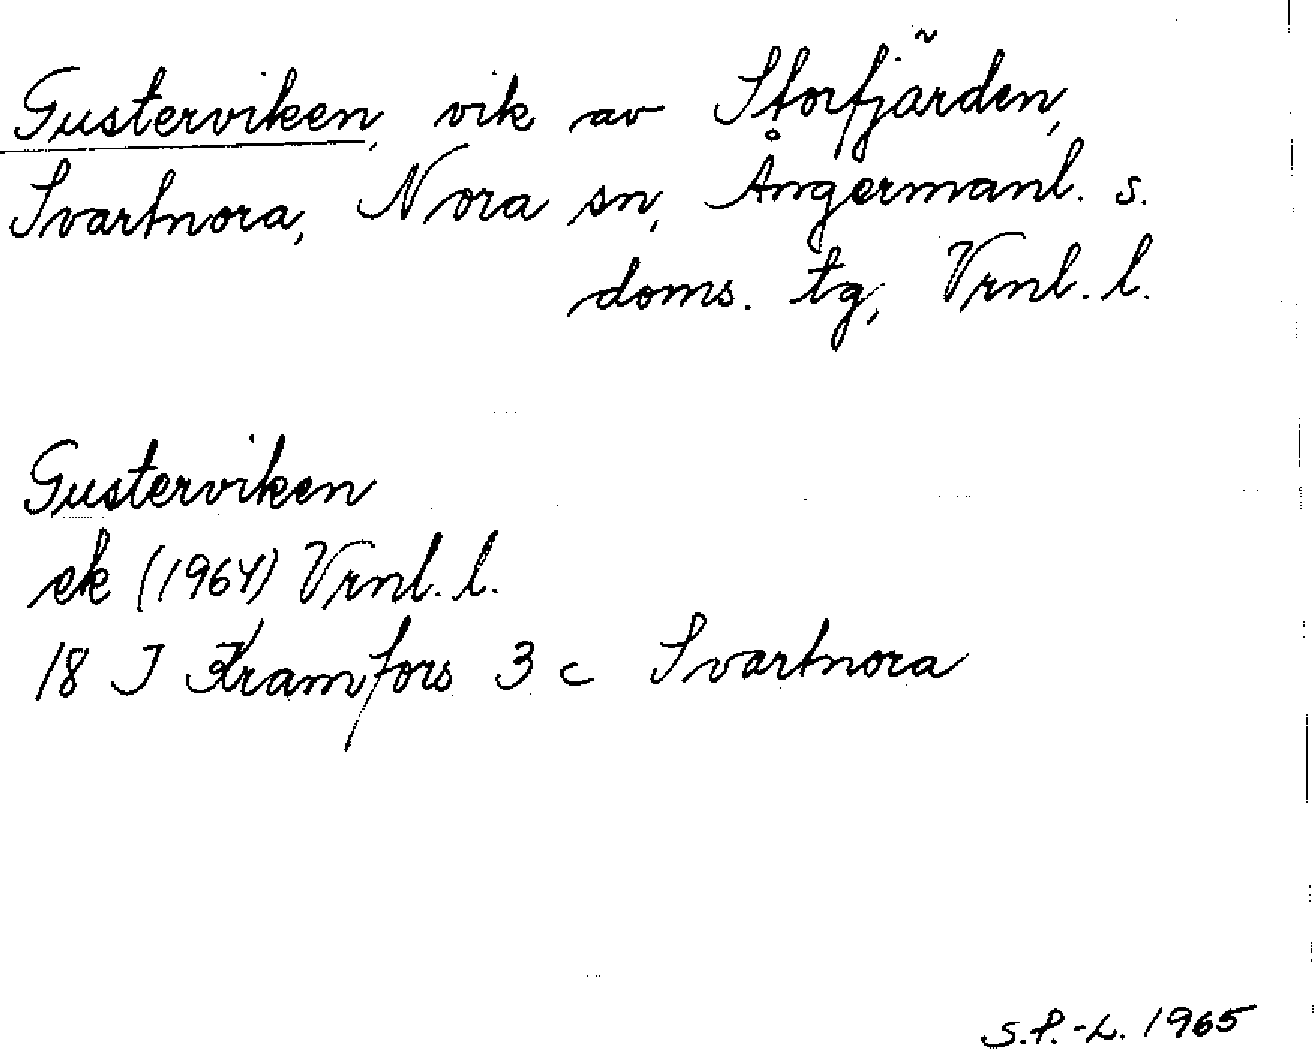 Gusterviken, vik av Storfjärden,
Svartnora, Nora sn, Ångermanl. s.
doms. tg, Vrnl. l.
Gusterviken
ek (1964) Vrnl. l.
18 J Kramfors 3 c Svartnora
S.P.-L. 1965